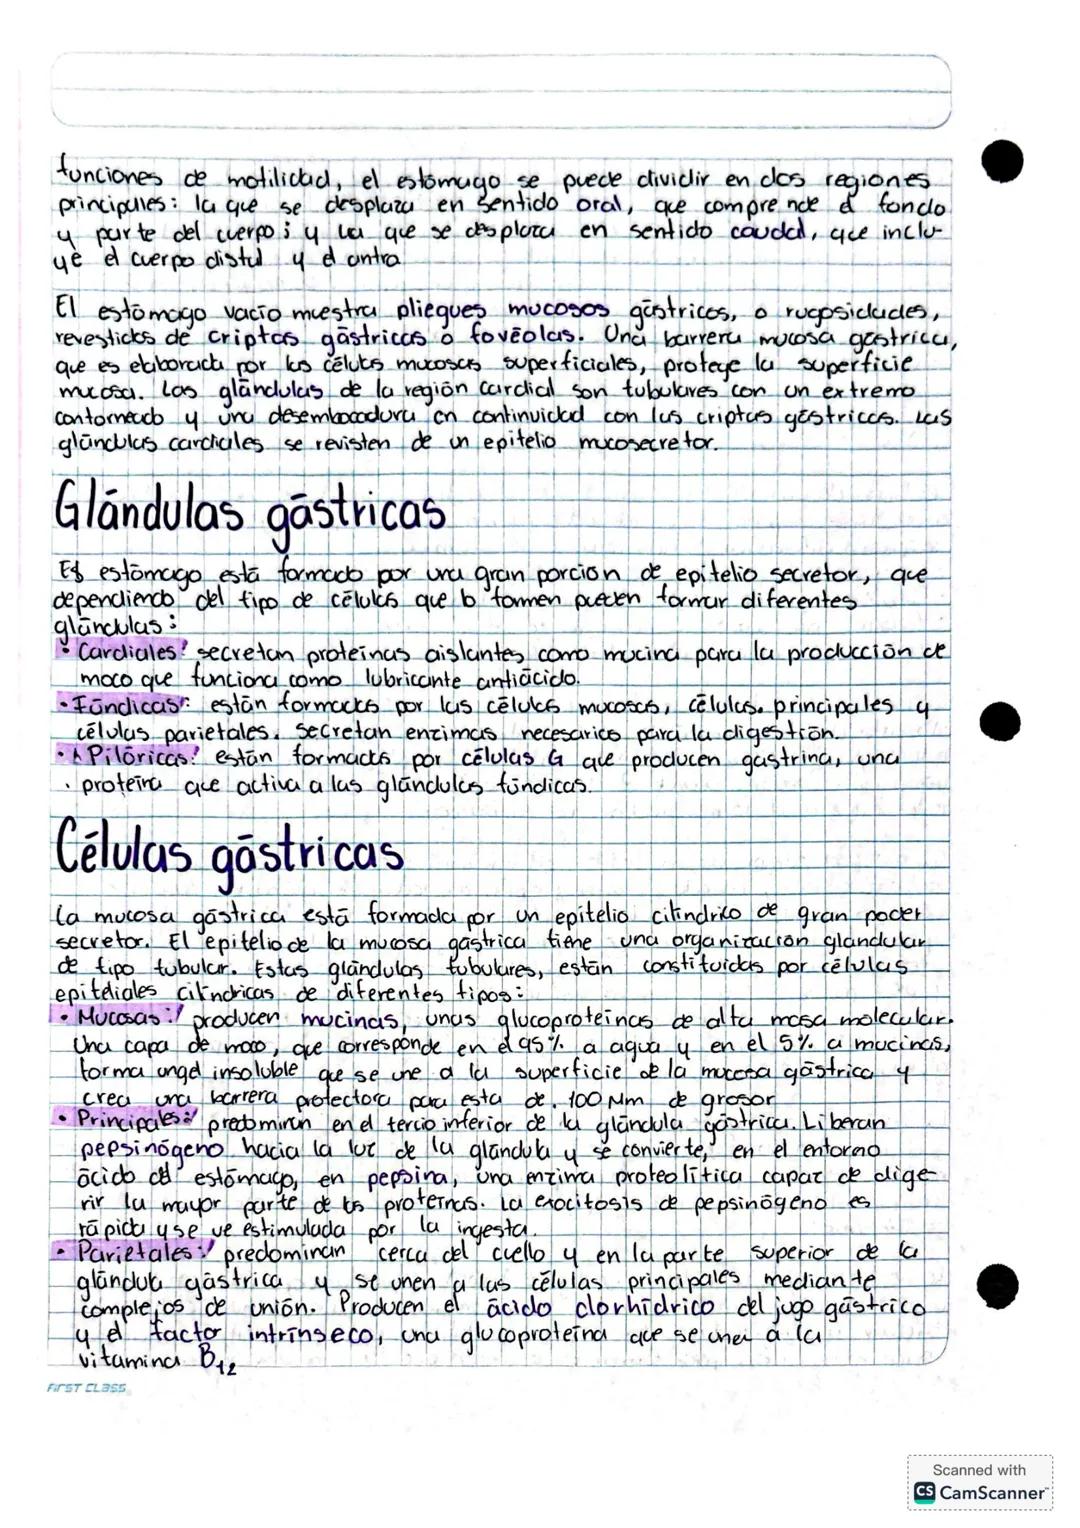 funciones de motilidad, el estómago se puede dividir en dos regiones
principales: la que se desplaza en sentido oral, que comprende el fondo
y parte del cuerpo; y la que se desplaza en sentido caudal, que inclu-
ye el cuerpo distal y el antro
El estómago vacío muestra pliegues mucosos gástricos, o rugosidades,
revestidos de criptas gástricas o fovéolas. Una barrera mucosa gástrica,
que es elaborada por las células mucosas superficiales, protege la superficie
mucosa. Las glándulas de la región cardial son tubulares con un extremo
contorneado y una desembocadura en continuidad con las criptas gástricas. Las
glándulas cardiales se revisten de un epitelio mucosecretor.
Glándulas gástricas
El estómago está formado por una gran porción de epitelio secretor, que
dependiendo del tipo de células que lo formen pueden formar diferentes
glándulas:
• Cardiales: secretan proteínas aislantes como mucina para la producción de
moco que funciona como lubricante antiácido.
• Fúndicas: están formadas por las células mucosas, células principales y
células parietales. Secretan enzimas necesarias para la digestión.
• Pilóricas: están formadas por células G que producen gastrina, una
proteína que activa a las glándulas fúndicas.
Células gástricas
La mucosa gástrica está formada por un epitelio cilíndrico de gran poder
secretor. El epitelio de la mucosa gástrica tiene una organización glandular
de tipo tubular. Estas glándulas tubulares, están constituidas por células
epiteliales cilíndricas de diferentes tipos:
• Mucosas: producen mucinas, unas glucoproteínas de alta masa molecular.
Una capa de moco, que corresponde en el 95% a agua y en el 5% a mucinas,
forma un gel insoluble que se une a la superficie de la mucosa gástrica y
crea una barrera protectora para esta de 100 Mm de grosor
• Principales: predominan en el tercio inferior de la glándula gástrica. Liberan
pepsinógeno hacia la luz de la glándula y se convierte, en el entorno
ácido del estómago, en pepsina, una enzima proteolítica capaz de dige
rir la mayor parte de las proteínas. La exocitosis de pepsinógeno es
rápida y se ve estimulada por la ingesta.
• Parietales: predominan cerca del cuello y en la parte superior de la
glándula gástrica y se unen a las células principales mediante
complejos de unión. Producen el ácido clorhídrico del jugo gástrico
y el factor intrínseco, una glucoproteína que se une a la
vitamina B12
FIRST CLASS
Scanned with
CS CamScanner